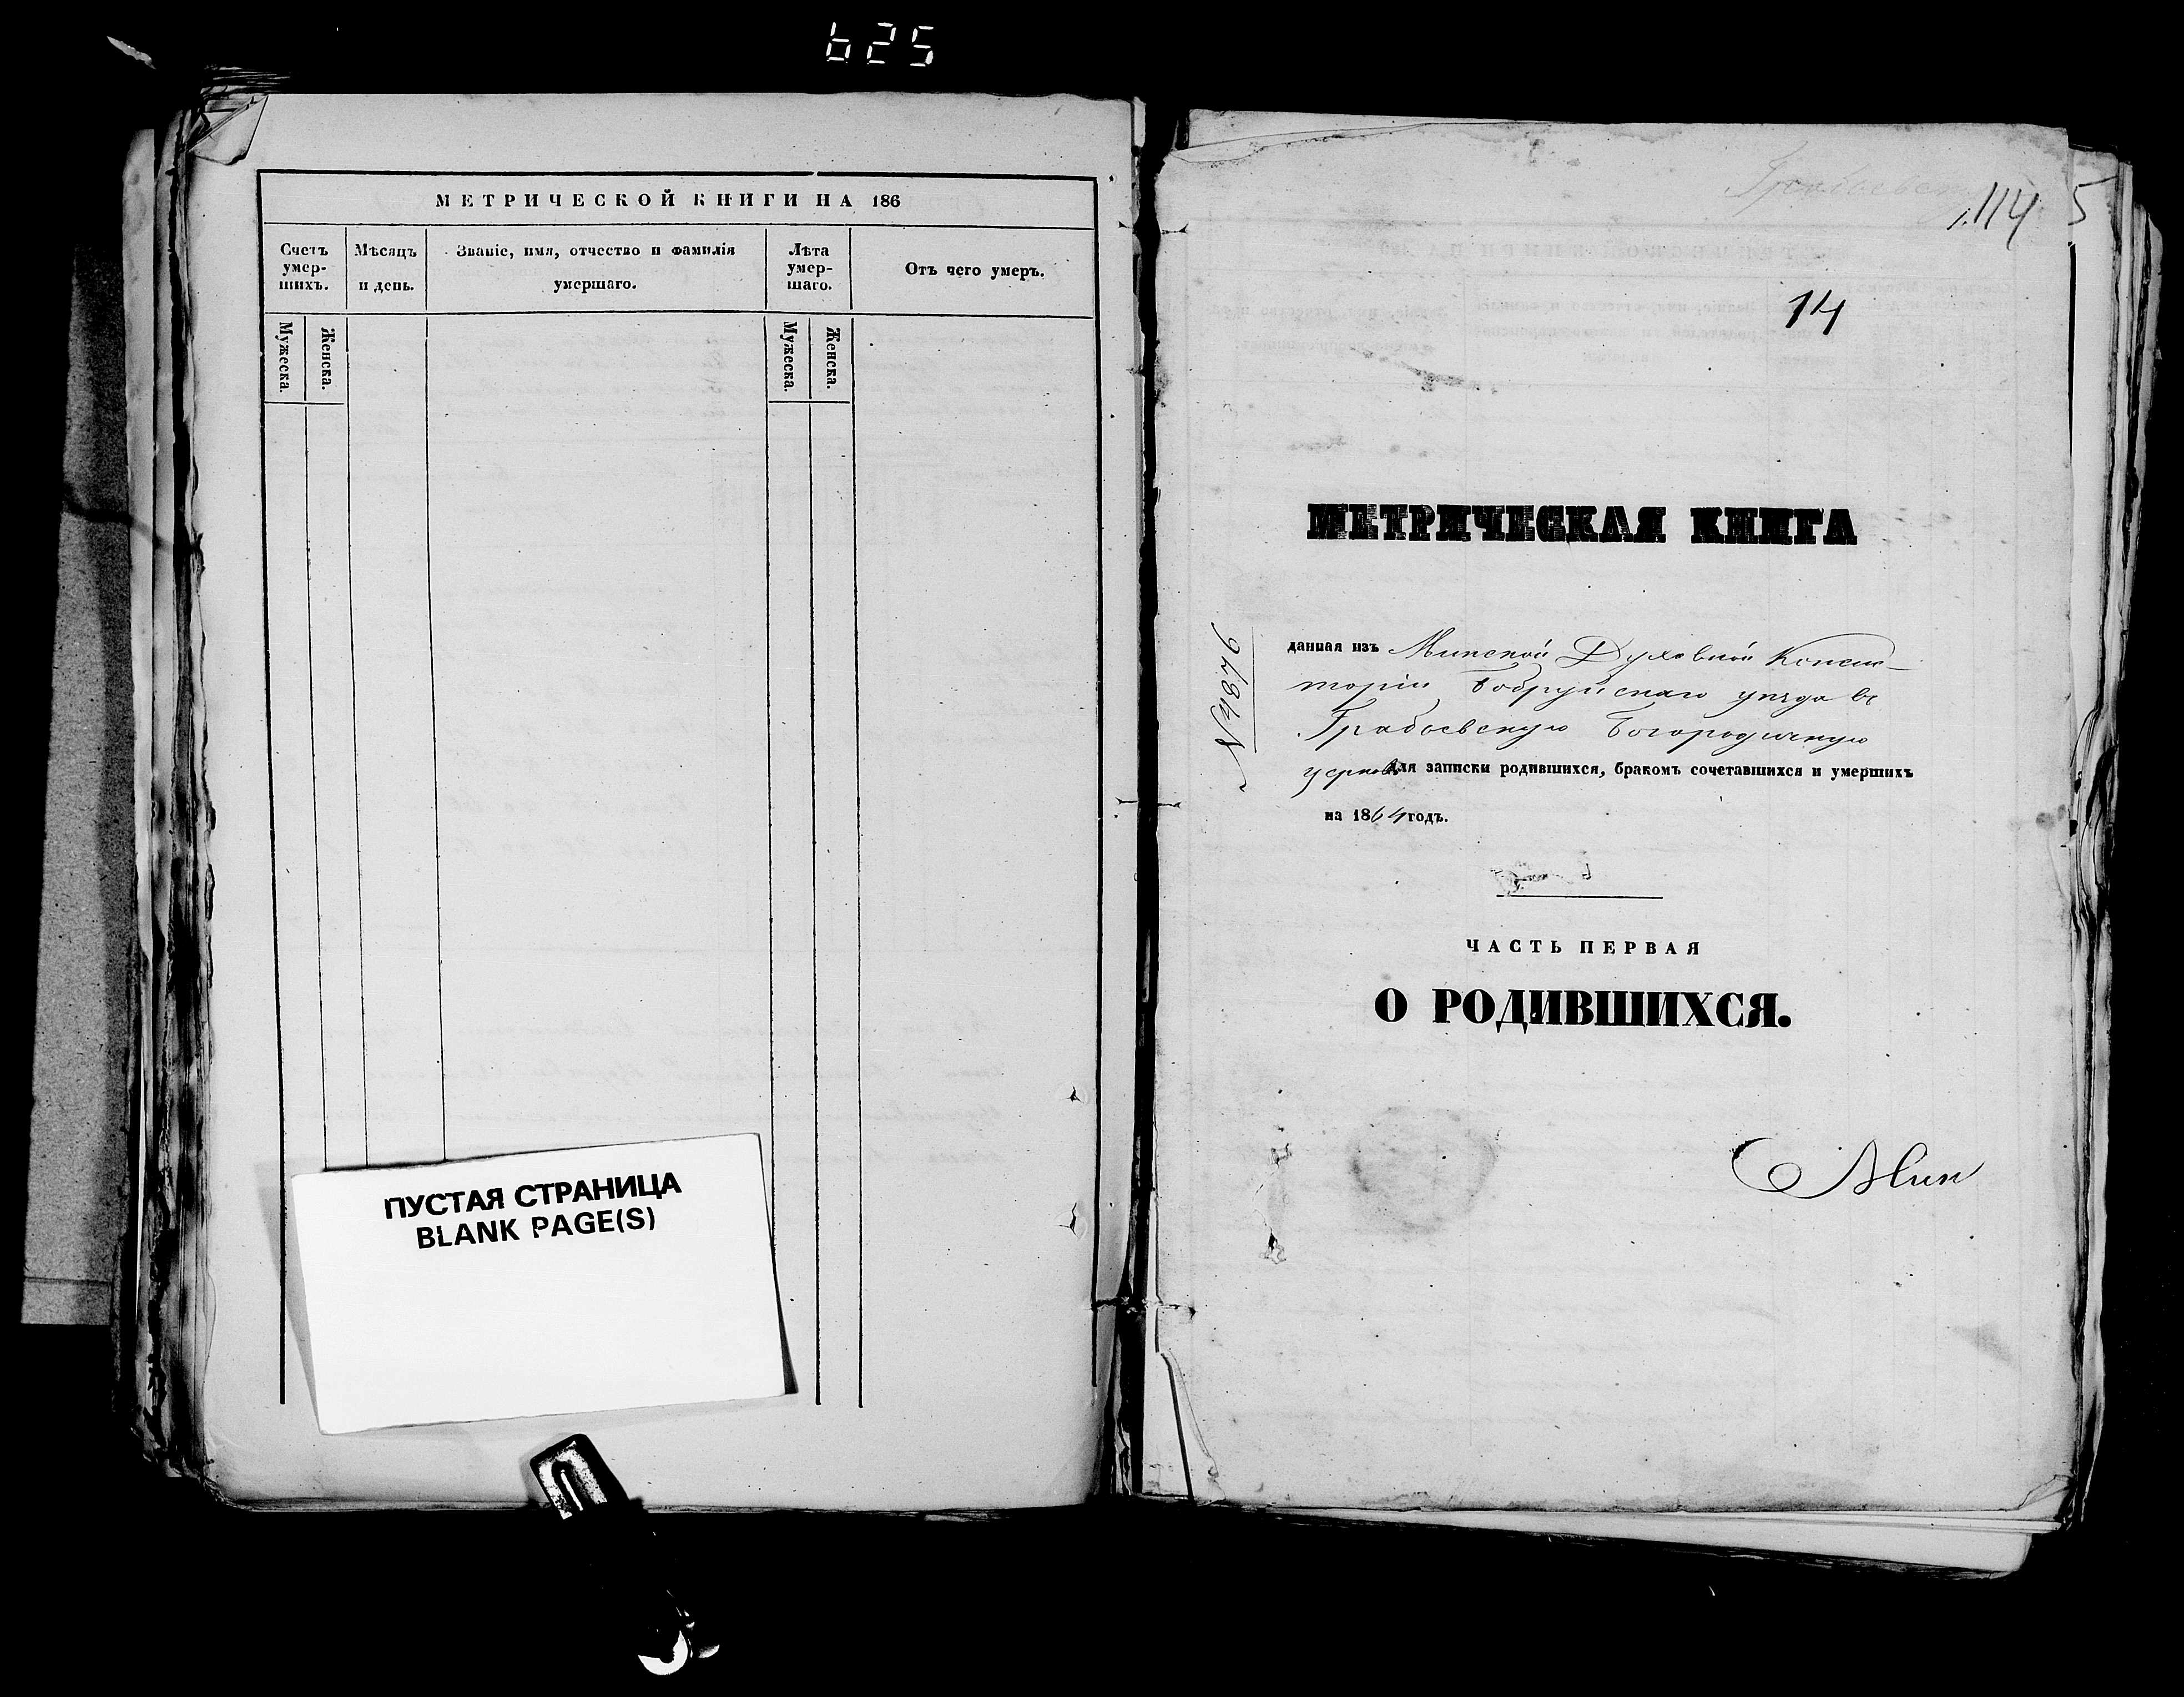 625
МЕТРИЧЕСКОЙ КНИГИ НА 186
Счетъ умер-шихъ.
Мѣсяцъ и день.
Званіе, имя, отчество и фамилія умершаго.
Лѣта умер-шаго.
Отъ чего умеръ.
Мужеска.
Женска.
Мужеска.
Женска.
ПУСТАЯ СТРАНИЦА
BLANK PAGE(S)
114
5
14
МЕТРИЧЕСКАЯ КНИГА
№4876
данная изъ Минской Духовной Консис-
торіи Бобруйскаго уѣзда въ
Грабьевскую Богородичную
церковь для записки родившихся, бракомъ сочетавшихся и умершихъ
на 1864 годъ.
ЧАСТЬ ПЕРВАЯ
О РОДИВШИХСЯ.
Мин